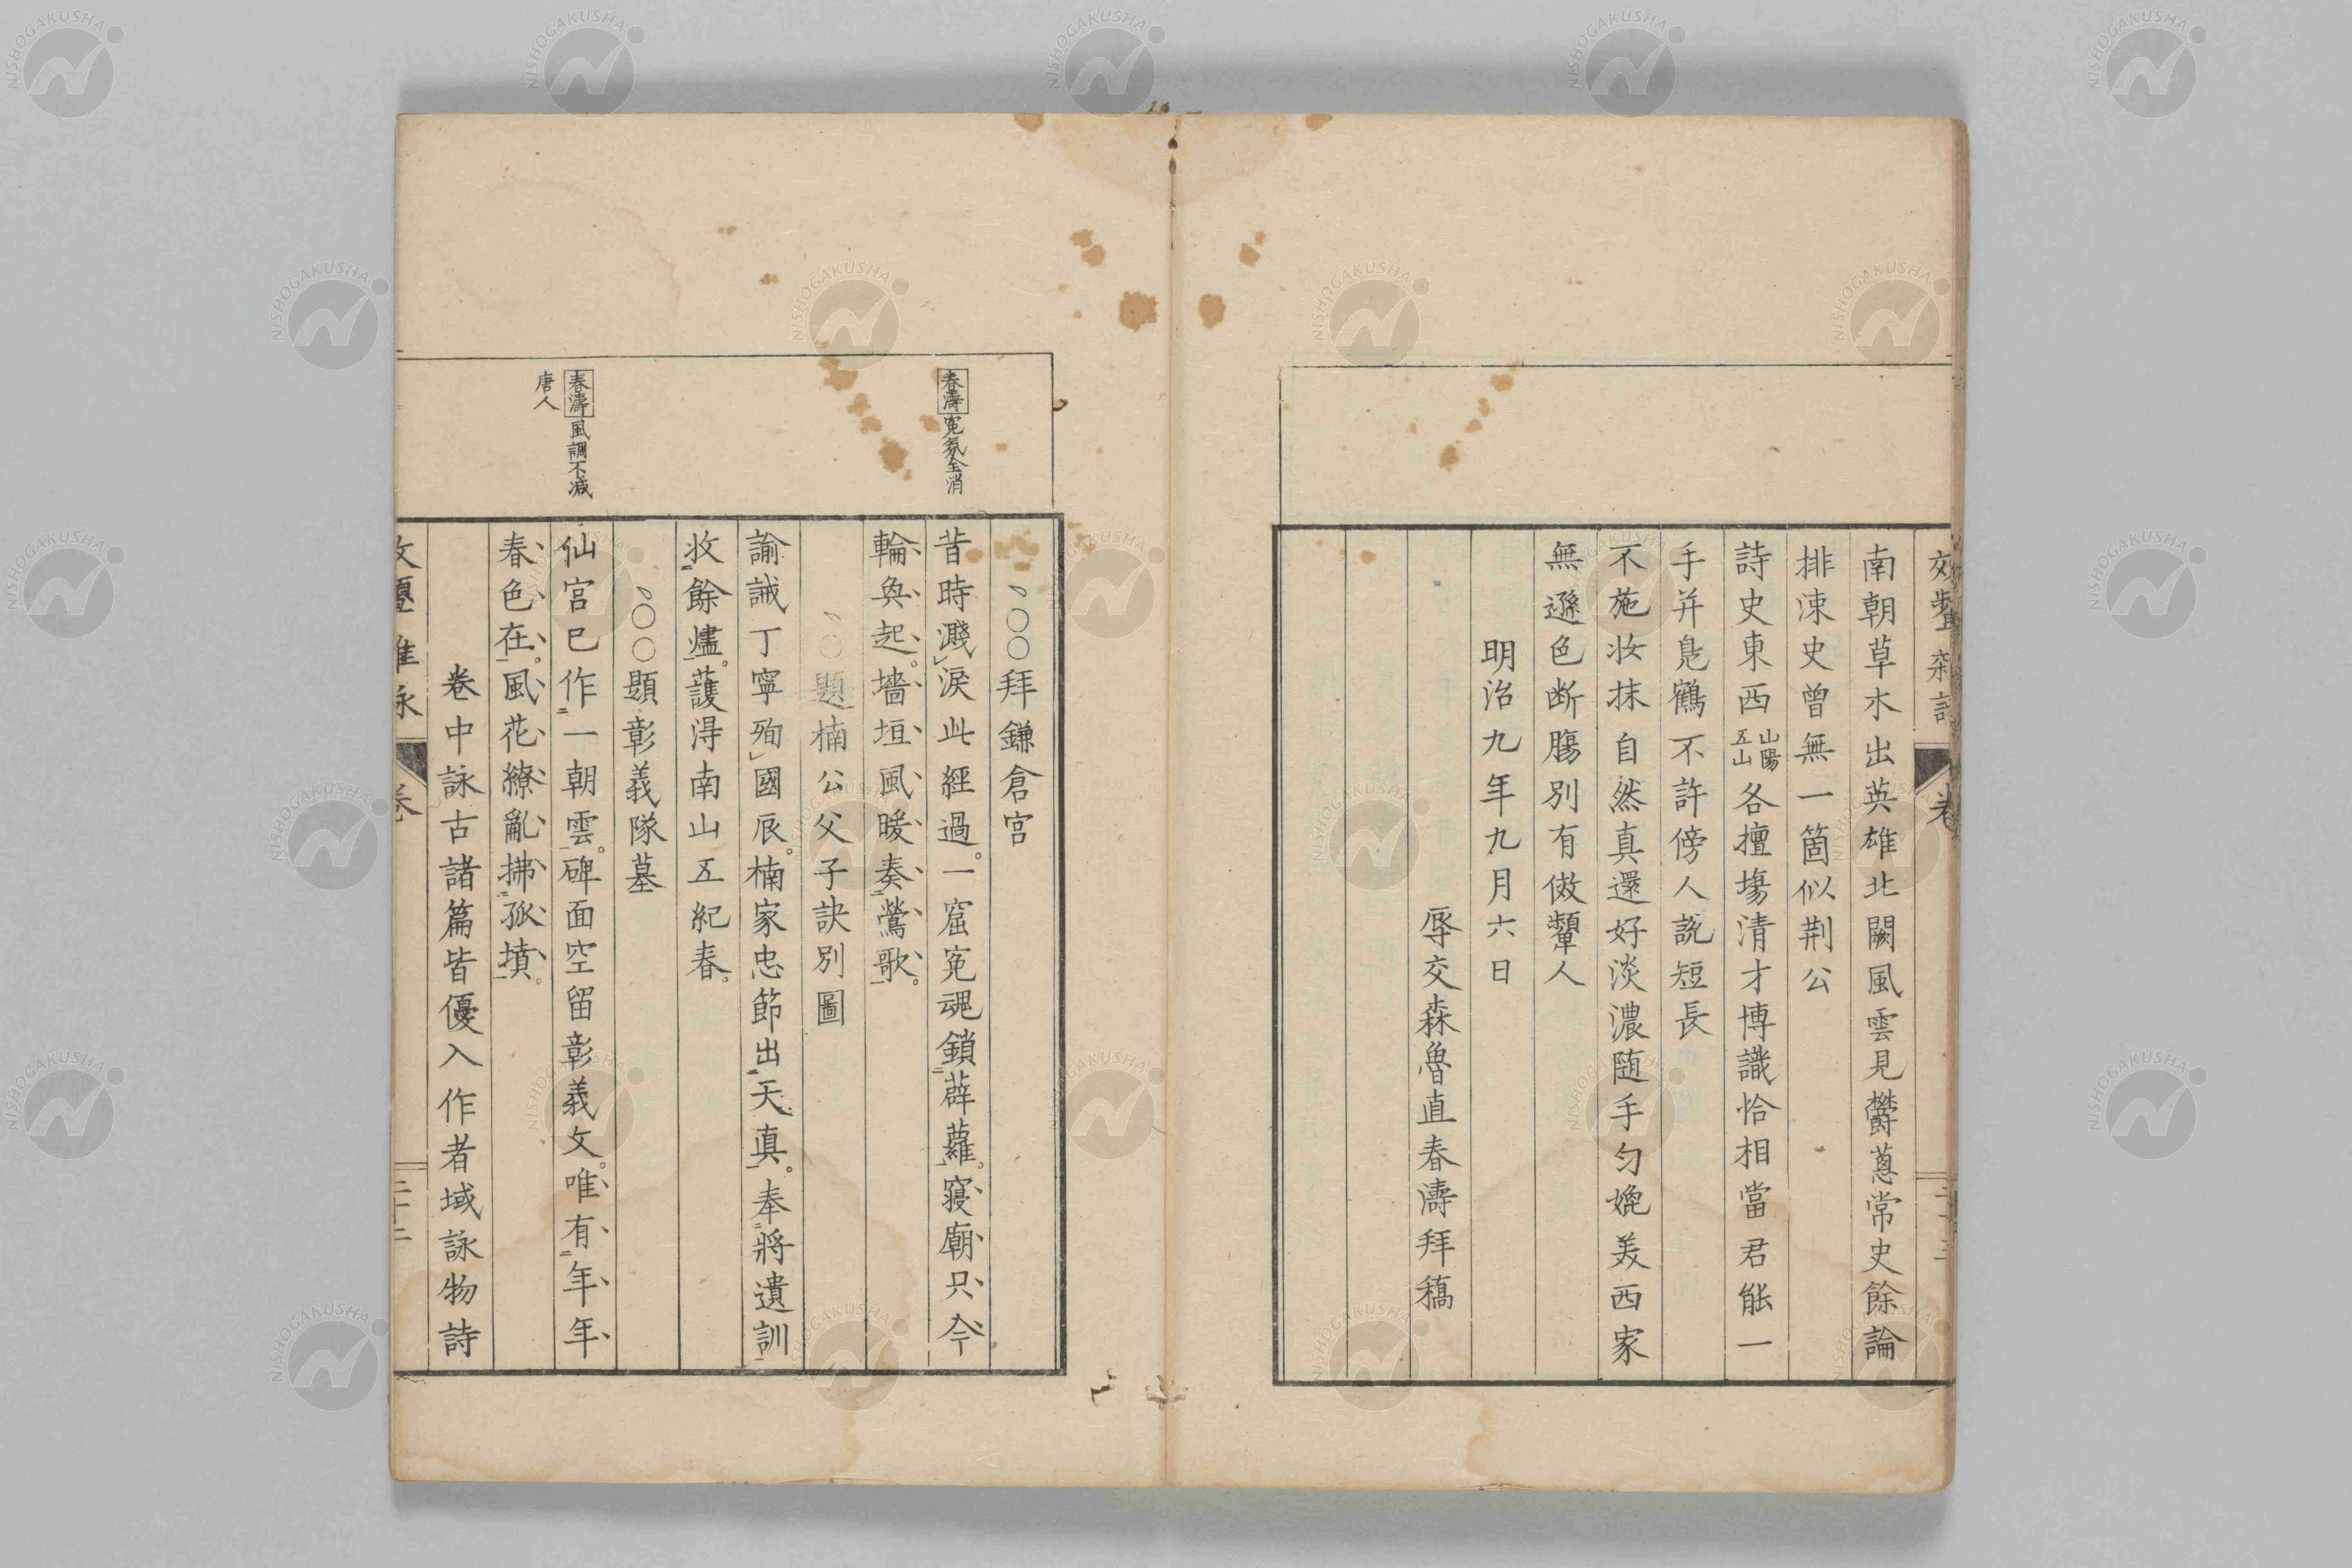 南朝草木出英雄北闕風雲見鬱蔥常史餘論
排涑史曾無一箇似荆公
詩史東西山陽五山各擅塲清才博識恰相當君能一
手并鳬鶴不許傍人説短長
不施妝抹自然真還好淡濃随手匀娩美西家
無遜色断膓別有傚顰人
明治九年九月六日
辱交森魯直春濤拜稿
春濤寃氛全消
春濤風調不减
唐人
〇〇拜鎌倉宮
昔時濺淚此經過。一窟寃魂鎖薜蘿。寢廟只今
輪奐起。墻垣風暖奏鶯歌。
〇題楠公父子訣別圖
諭誡丁寧殉國辰。楠家忠節出天真。奉將遺訓
收餘燼。護得南山五紀春。
〇〇題彰義隊墓
仙宮已作一朝雲。碑面空留彰義文。唯有年年
春色在。風花繚亂拂孤墳。
卷中詠古諸篇皆優入作者域詠物詩
卷
二十二
NISHOGAKUSHA